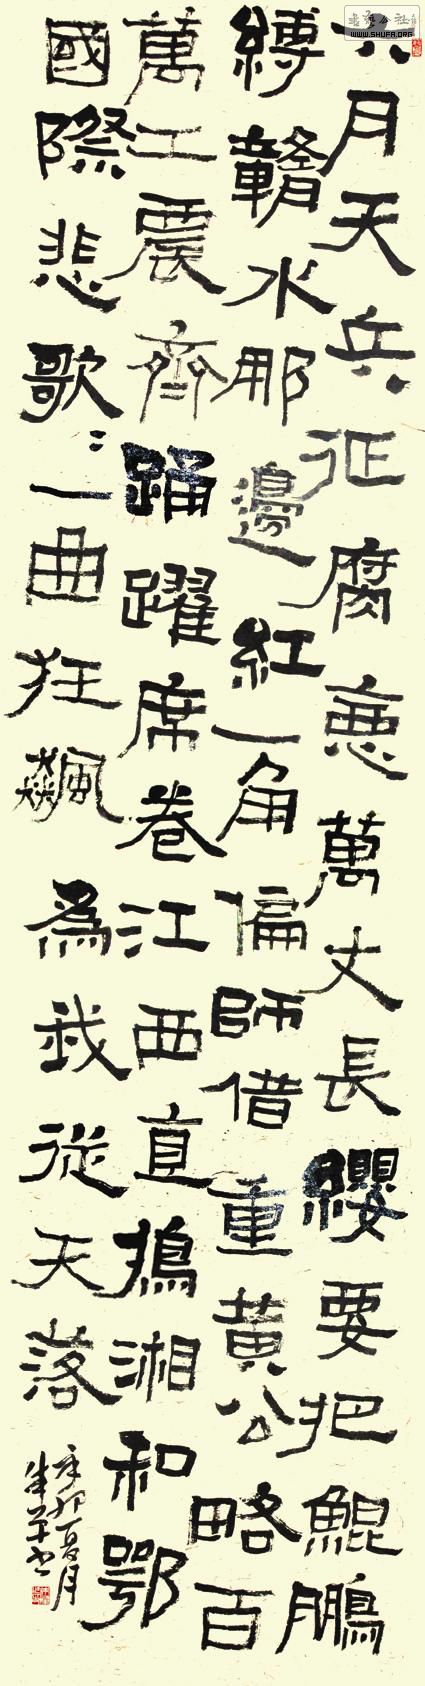 六月天兵征腐惡萬丈長纓要把鯤鵬
縛贛水那邊紅一角偏師借重黃公略百
萬工農齊踊躍席卷江西直搗湘和鄂
國際悲歌〻一曲狂飆為我從天落
辛卯夏月
WWW.SHUFA.ORG